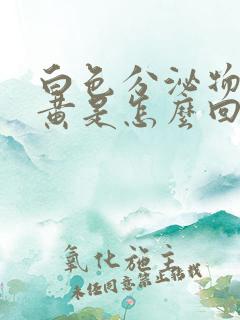 白色分泌物
黄是怎麼回
氧化施主
未经同意禁止转载